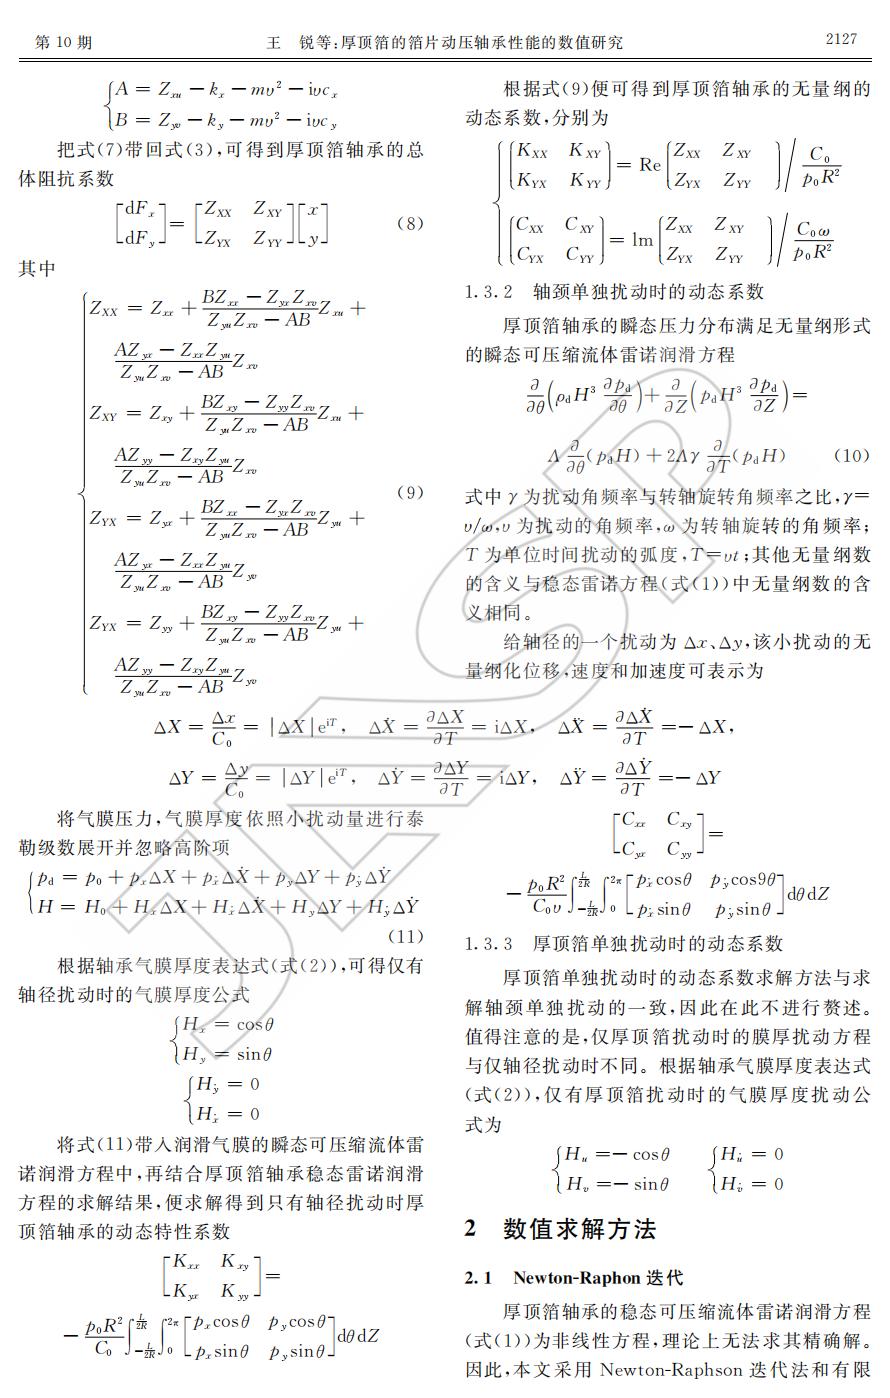 第 10 期
王　锐等:厚顶箔的箔片动压轴承性能的数值研究
2127
{A = Z_xu − k_x − mυ² − iυc_x
B = Z_yv − k_y − mυ² − iυc_y
把式(7)带回式(3),可得到厚顶箔轴承的总
体阻抗系数
[dF_x; dF_y] = [Z_XX Z_XY; Z_YX Z_YY][x; y] (8)
其中
Z_XX = Z_xx + (BZ_xx − Z_yx Z_xv)/(Z_yu Z_xv − AB) Z_xu +
(AZ_yx − Z_xx Z_yu)/(Z_yu Z_xv − AB) Z_xv
Z_XY = Z_xy + (BZ_xy − Z_yy Z_xv)/(Z_yu Z_xv − AB) Z_xu +
(AZ_yy − Z_xy Z_yu)/(Z_yu Z_xv − AB) Z_xv
(9)
Z_YX = Z_yx + (BZ_xx − Z_yx Z_xv)/(Z_yu Z_xv − AB) Z_yu +
(AZ_yx − Z_xx Z_yu)/(Z_yu Z_xv − AB) Z_yv
Z_YX = Z_yy + (BZ_xy − Z_yy Z_xv)/(Z_yu Z_xv − AB) Z_yu +
(AZ_yy − Z_xy Z_yu)/(Z_yu Z_xv − AB) Z_yv
根据式(9)便可得到厚顶箔轴承的无量纲的
动态系数,分别为
{K_XX K_XY; K_YX K_YY} = Re{Z_XX Z_XY; Z_YX Z_YY} / (C_0/(p_0R²))
{C_XX C_XY; C_YX C_YY} = lm{Z_XX Z_XY; Z_YX Z_YY} / (C_0ω/(p_0R²))
1.3.2　轴颈单独扰动时的动态系数
厚顶箔轴承的瞬态压力分布满足无量纲形式
的瞬态可压缩流体雷诺润滑方程
∂/∂θ(ρ_d H³ ∂p_d/∂θ) + ∂/∂Z(p_d H³ ∂p_d/∂Z) =
Λ ∂/∂θ(p_d H) + 2Λγ ∂/∂T(p_d H) (10)
式中 γ 为扰动角频率与转轴旋转角频率之比,γ=
υ/ω,υ 为扰动的角频率,ω 为转轴旋转的角频率;
T 为单位时间扰动的弧度,T=υt;其他无量纲数
的含义与稳态雷诺方程(式(1))中无量纲数的含
义相同。
给轴径的一个扰动为 Δx、Δy,该小扰动的无
量纲化位移,速度和加速度可表示为
ΔX = Δx/C_0 = |ΔX|e^{iT}, ΔẊ = ∂ΔX/∂T = iΔX, ΔẌ = ∂ΔẊ/∂T =− ΔX,
ΔY = Δy/C_0 = |ΔY|e^{iT}, ΔẎ = ∂ΔY/∂T = iΔY, ΔŸ = ∂ΔẎ/∂T =− ΔY
将气膜压力,气膜厚度依照小扰动量进行泰
勒级数展开并忽略高阶项
{p_d = p_0 + p_x ΔX + p_ẋ ΔẊ + p_y ΔY + p_ẏ ΔẎ
H = H_0 + H_x ΔX + H_ẋ ΔẊ + H_y ΔY + H_ẏ ΔẎ
(11)
根据轴承气膜厚度表达式(式(2)),可得仅有
轴径扰动时的气膜厚度公式
{H_x = cosθ
H_y = sinθ
{H_ẏ = 0
H_ẋ = 0
将式(11)带入润滑气膜的瞬态可压缩流体雷
诺润滑方程中,再结合厚顶箔轴承稳态雷诺润滑
方程的求解结果,便求解得到只有轴径扰动时厚
顶箔轴承的动态特性系数
[K_xx K_xy; K_yx K_yy] =
− p_0R²/C_0 ∫_{−L/2R}^{L/2R} ∫_0^{2π} [p_x cosθ p_y cosθ; p_x sinθ p_y sinθ] dθdZ
[C_xx C_xy; C_yx C_yy] =
− p_0R²/(C_0υ) ∫_{−L/2R}^{L/2R} ∫_0^{2π} [p_ẋ cosθ p_ẏ cos9θ; p_ẋ sinθ p_ẏ sinθ] dθdZ
1.3.3　厚顶箔单独扰动时的动态系数
厚顶箔单独扰动时的动态系数求解方法与求
解轴颈单独扰动的一致,因此在此不进行赘述。
值得注意的是,仅厚顶箔扰动时的膜厚扰动方程
与仅轴径扰动时不同。根据轴承气膜厚度表达式
(式(2)),仅有厚顶箔扰动时的气膜厚度扰动公
式为
{H_u =− cosθ {H_u̇ = 0
H_v =− sinθ H_v̇ = 0
2　数值求解方法
2.1　Newton-Raphon 迭代
厚顶箔轴承的稳态可压缩流体雷诺润滑方程
(式(1))为非线性方程,理论上无法求其精确解。
因此,本文采用 Newton-Raphson 迭代法和有限
JASP